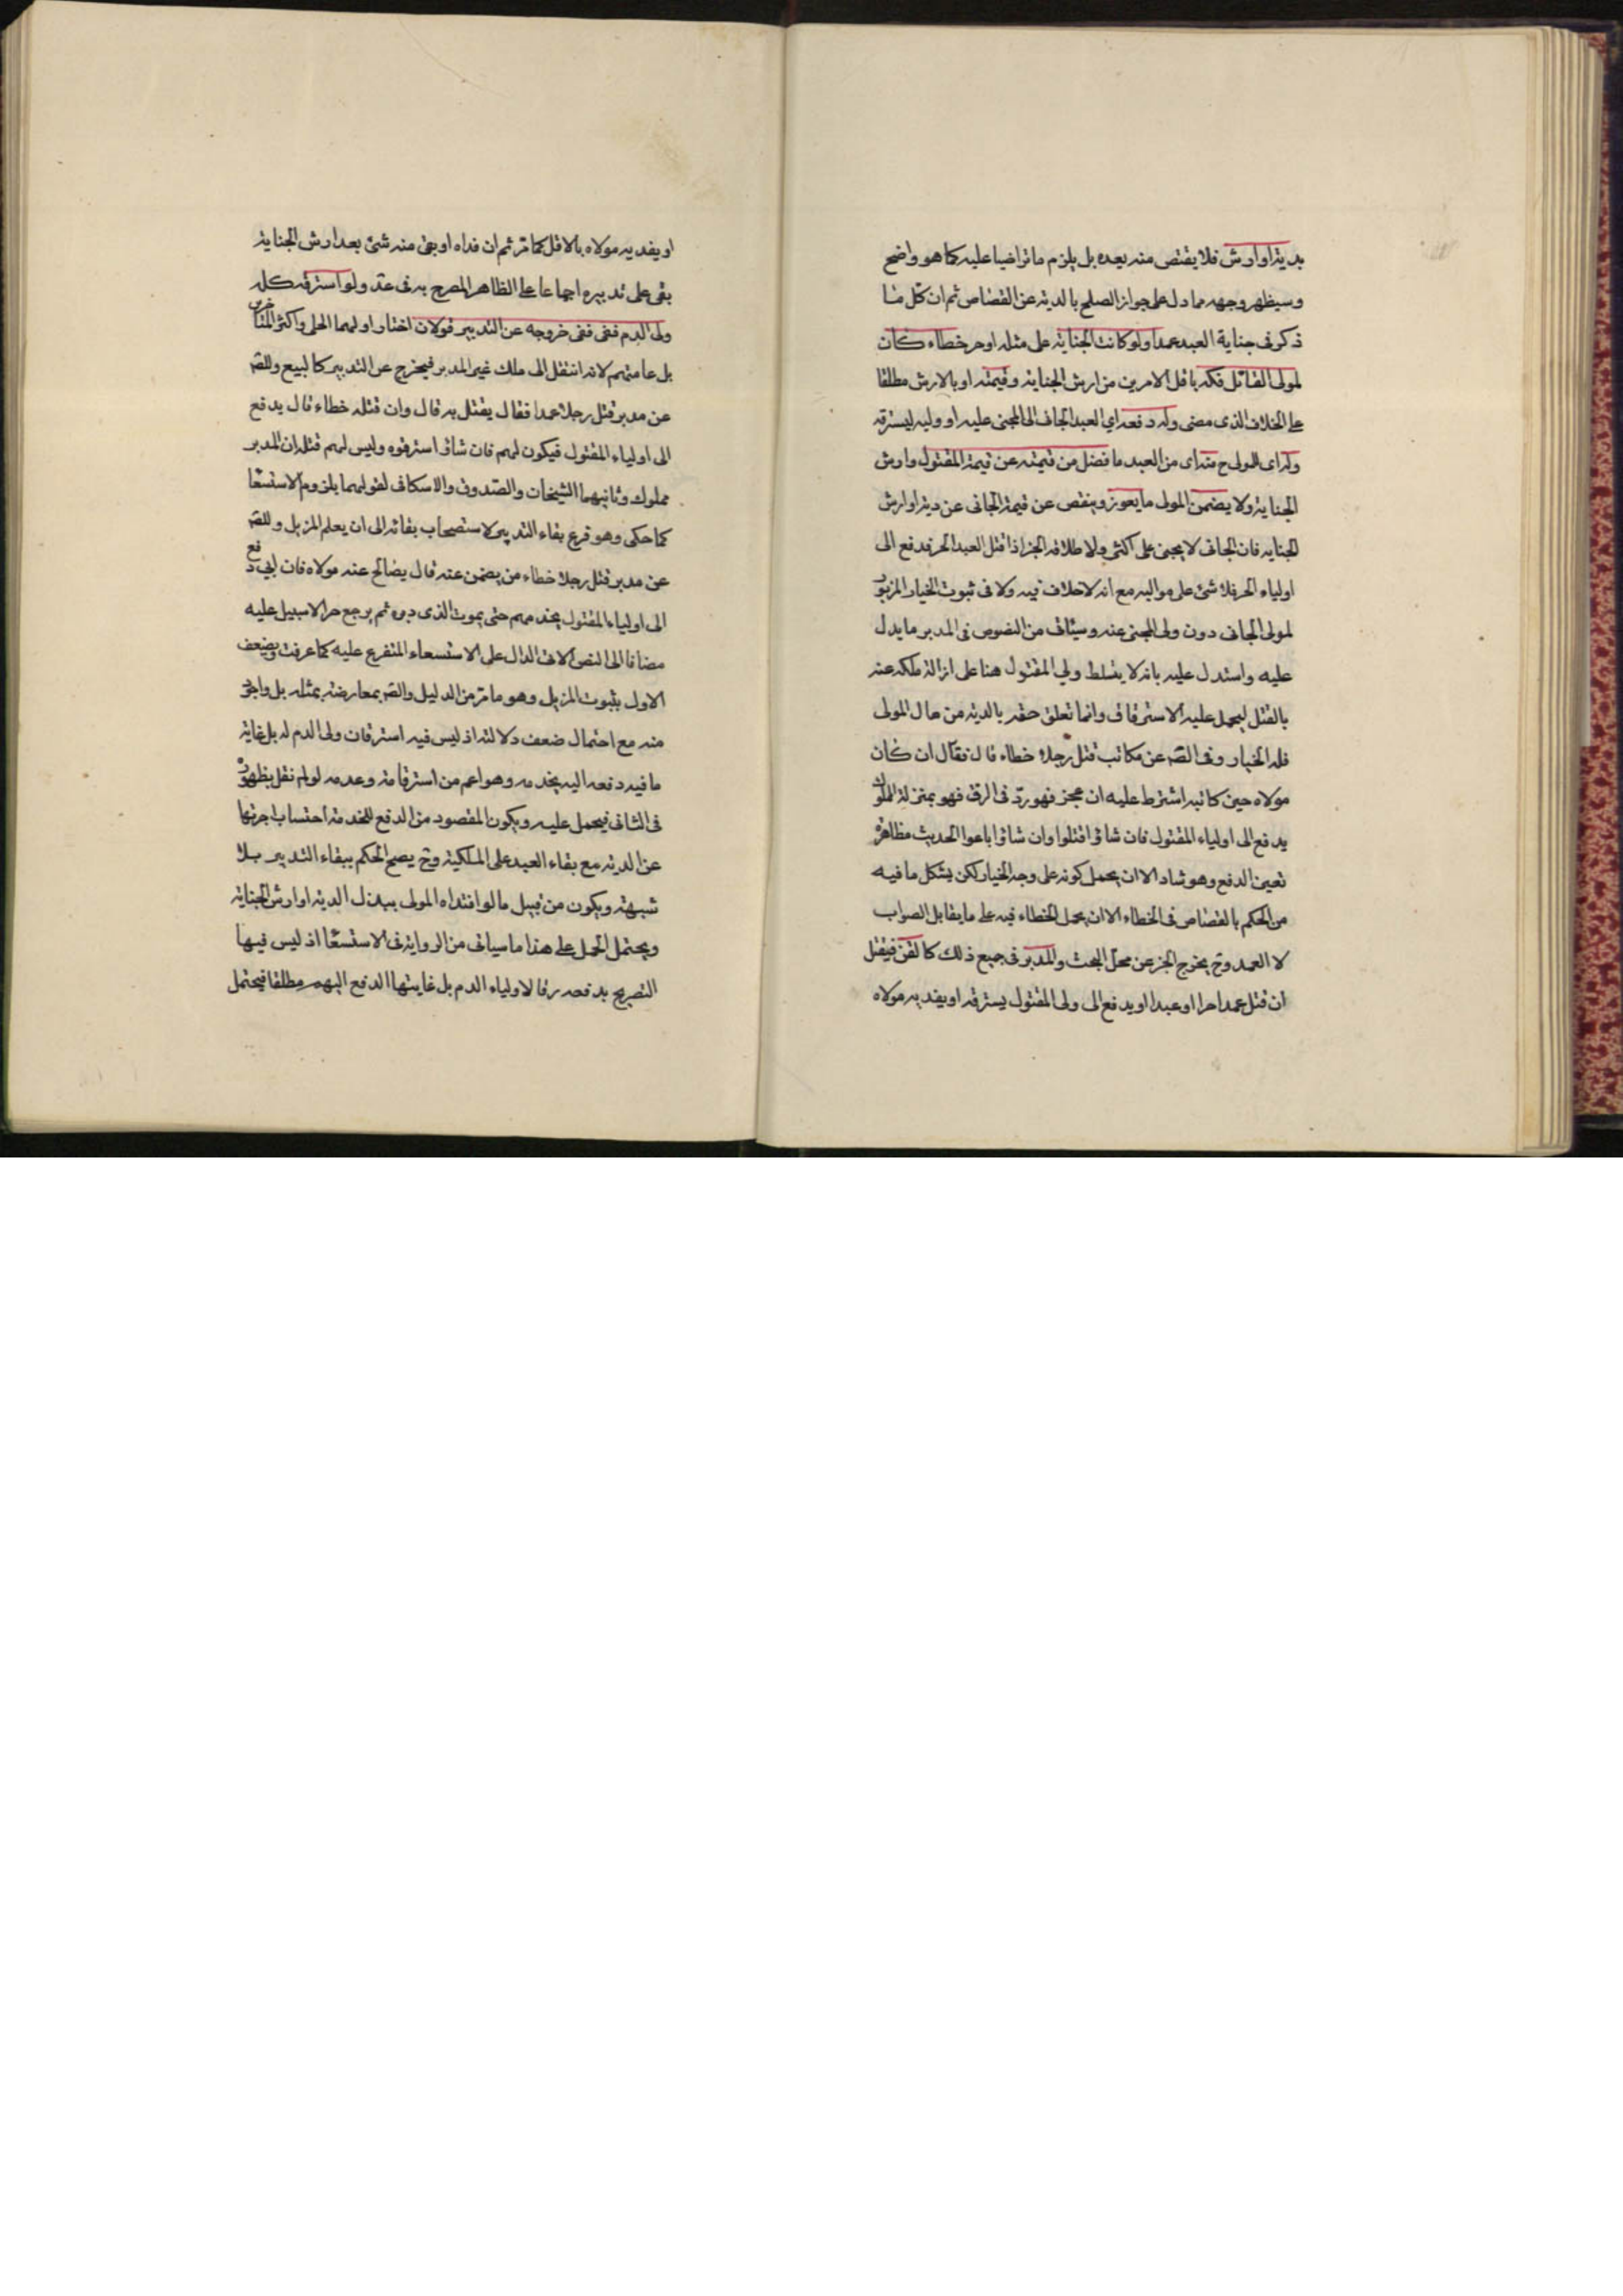 بدية او ارش فلا يقتص منه بعده بل يلزم ما تراضيا عليه كما هو واضح
وسيظهر وجهه مما دل على جواز الصلح بالدية عن القصاص ثم ان كل هذا
ذكر في جناية العبد عمدا ولو كانت الجناية على مثله او حر خطاء كان
لمولى القاتل فكه باقل الامرين من ارش الجناية وقيمته او بالارش مطلقا
على الخلاف الذى مضى وله دفعه اي العبد الجاني الى المجني عليه او وليه ليسترقه
وله اى للمولى ح منه اى من العبد ما فضل من قيمته عن قيمة المقتول وارش
الجناية ولا يضمن المولى ما يعوز وينقص عن قيمة الجاني عن دية او ارش
الجناية فان الجاني لا يجني على اكثر ولاطلاق الخبر اذا قتل العبد الحر فدفع الى
اولياء الحر فلا شئ على مواليه مع انه لا خلاف فيه ولا في ثبوت الخيار المزبور
لمولى الجاني دون ولى المجنى عنه وسيأتي من النصوص في المدبر ما يدل
عليه واستدل عليه بانه لا يتسلط ولي المقتول هنا على ازالة ملكه عنه
بالقتل ليحمل عليه الاسترقاق وانما تعلق حقه بالدية من مال المولى
فله الخيار وفى الصه عن مكاتب قتل رجلا خطاء قال فقال ان كان
مولاه حين كاتبه اشترط عليه ان عجز فهو ردّ في الرق فهو بمنزلة المملوك
يدفع الى اولياء المقتول فان شاؤا قتلوا وان شاؤا باعوا الحديث وظاهره
تعين الدفع وهو شاذ الا ان يحمل كونه على وجه الخيار لكن يشكل ما فيه
من الحكم بالقصاص في الخطاء الا ان يحمل الخطاء فيه على ما يقابل الصواب
لا العمد وح يخرج الخبر عن محل البحث والمدبر في جميع ذلك كالقن فيقتل
ان قتل عمدا حرا او عبدا او يدفع الى ولى المقتول يسترقه او يفديه مولاه
او يفديه مولاه بالاقل كما مر ثم ان فداه او بقى منه شئ بعد ارش الجناية
بقى على تدبيره اجماعا على الظاهر المصرح به في عدّ ولو استرقه كله
ولى الدم ففى ففى خروجه عن التدبير قولان اختار اولهما الحلى واكثر المتأخرين
بل عامتهم لانه انتقل الى ملك غير المدبر فيخرج عن التدبير كالبيع وللصه
عن مدبر قتل رجلا عمدا فقال يقتل به قال وان قتله خطاء قال يدفع
الى اولياء المقتول فيكون لهم فان شاؤ استرقوه وليس لهم قتله ان المدبر
مملوك وثانيهما الشيخان والصدوق والاسكافى لقولهما بلزوم الاستسعا
كما حكى وهو فرع بقاء التدبير لاستصحاب بقائه الى ان يعلم المزيل وللصه
عن مدبر قتل رجلا خطاء من يضمن عنه قال يصالح عنه مولاه فان ابى دفع
الى اولياء المقتول يخدمهم حتى يموت الذى دبره ثم يرجع حرا لا سبيل عليه
مضافا الى النص الاتى الدال على الاستسعاء المتفرع عليه كما عرفت ويضعف
الاول بثبوت المزيل وهو ما مر من الدليل والصه بمعارضته بمثله بل واجود
منه مع احتمال ضعف دلالته اذ ليس فيه استرقاق ولى الدم له بل غاية
ما فيه دفعه اليه يخدمه وهو اعم من استرقاقه وعدمه لو لم نقل بظهوره
فى الثانى فيحمل عليه ويكون المقصود من الدفع للخدمة احتساب اجرتها
عن الدية مع بقاء العبد على الملكية وح يصح الحكم ببقاء التدبير بلا
شبهة ويكون من قبيل ما لو افتداه المولى ببذل الدية او ارش الجناية
ويحتمل الحمل على هذا ما سياتى من الرواية فى الاستسعا اذ ليس فيها
التصريح بدفعه رقا لاولياء الدم بل غايتها الدفع اليهم مطلقا فيحتمل